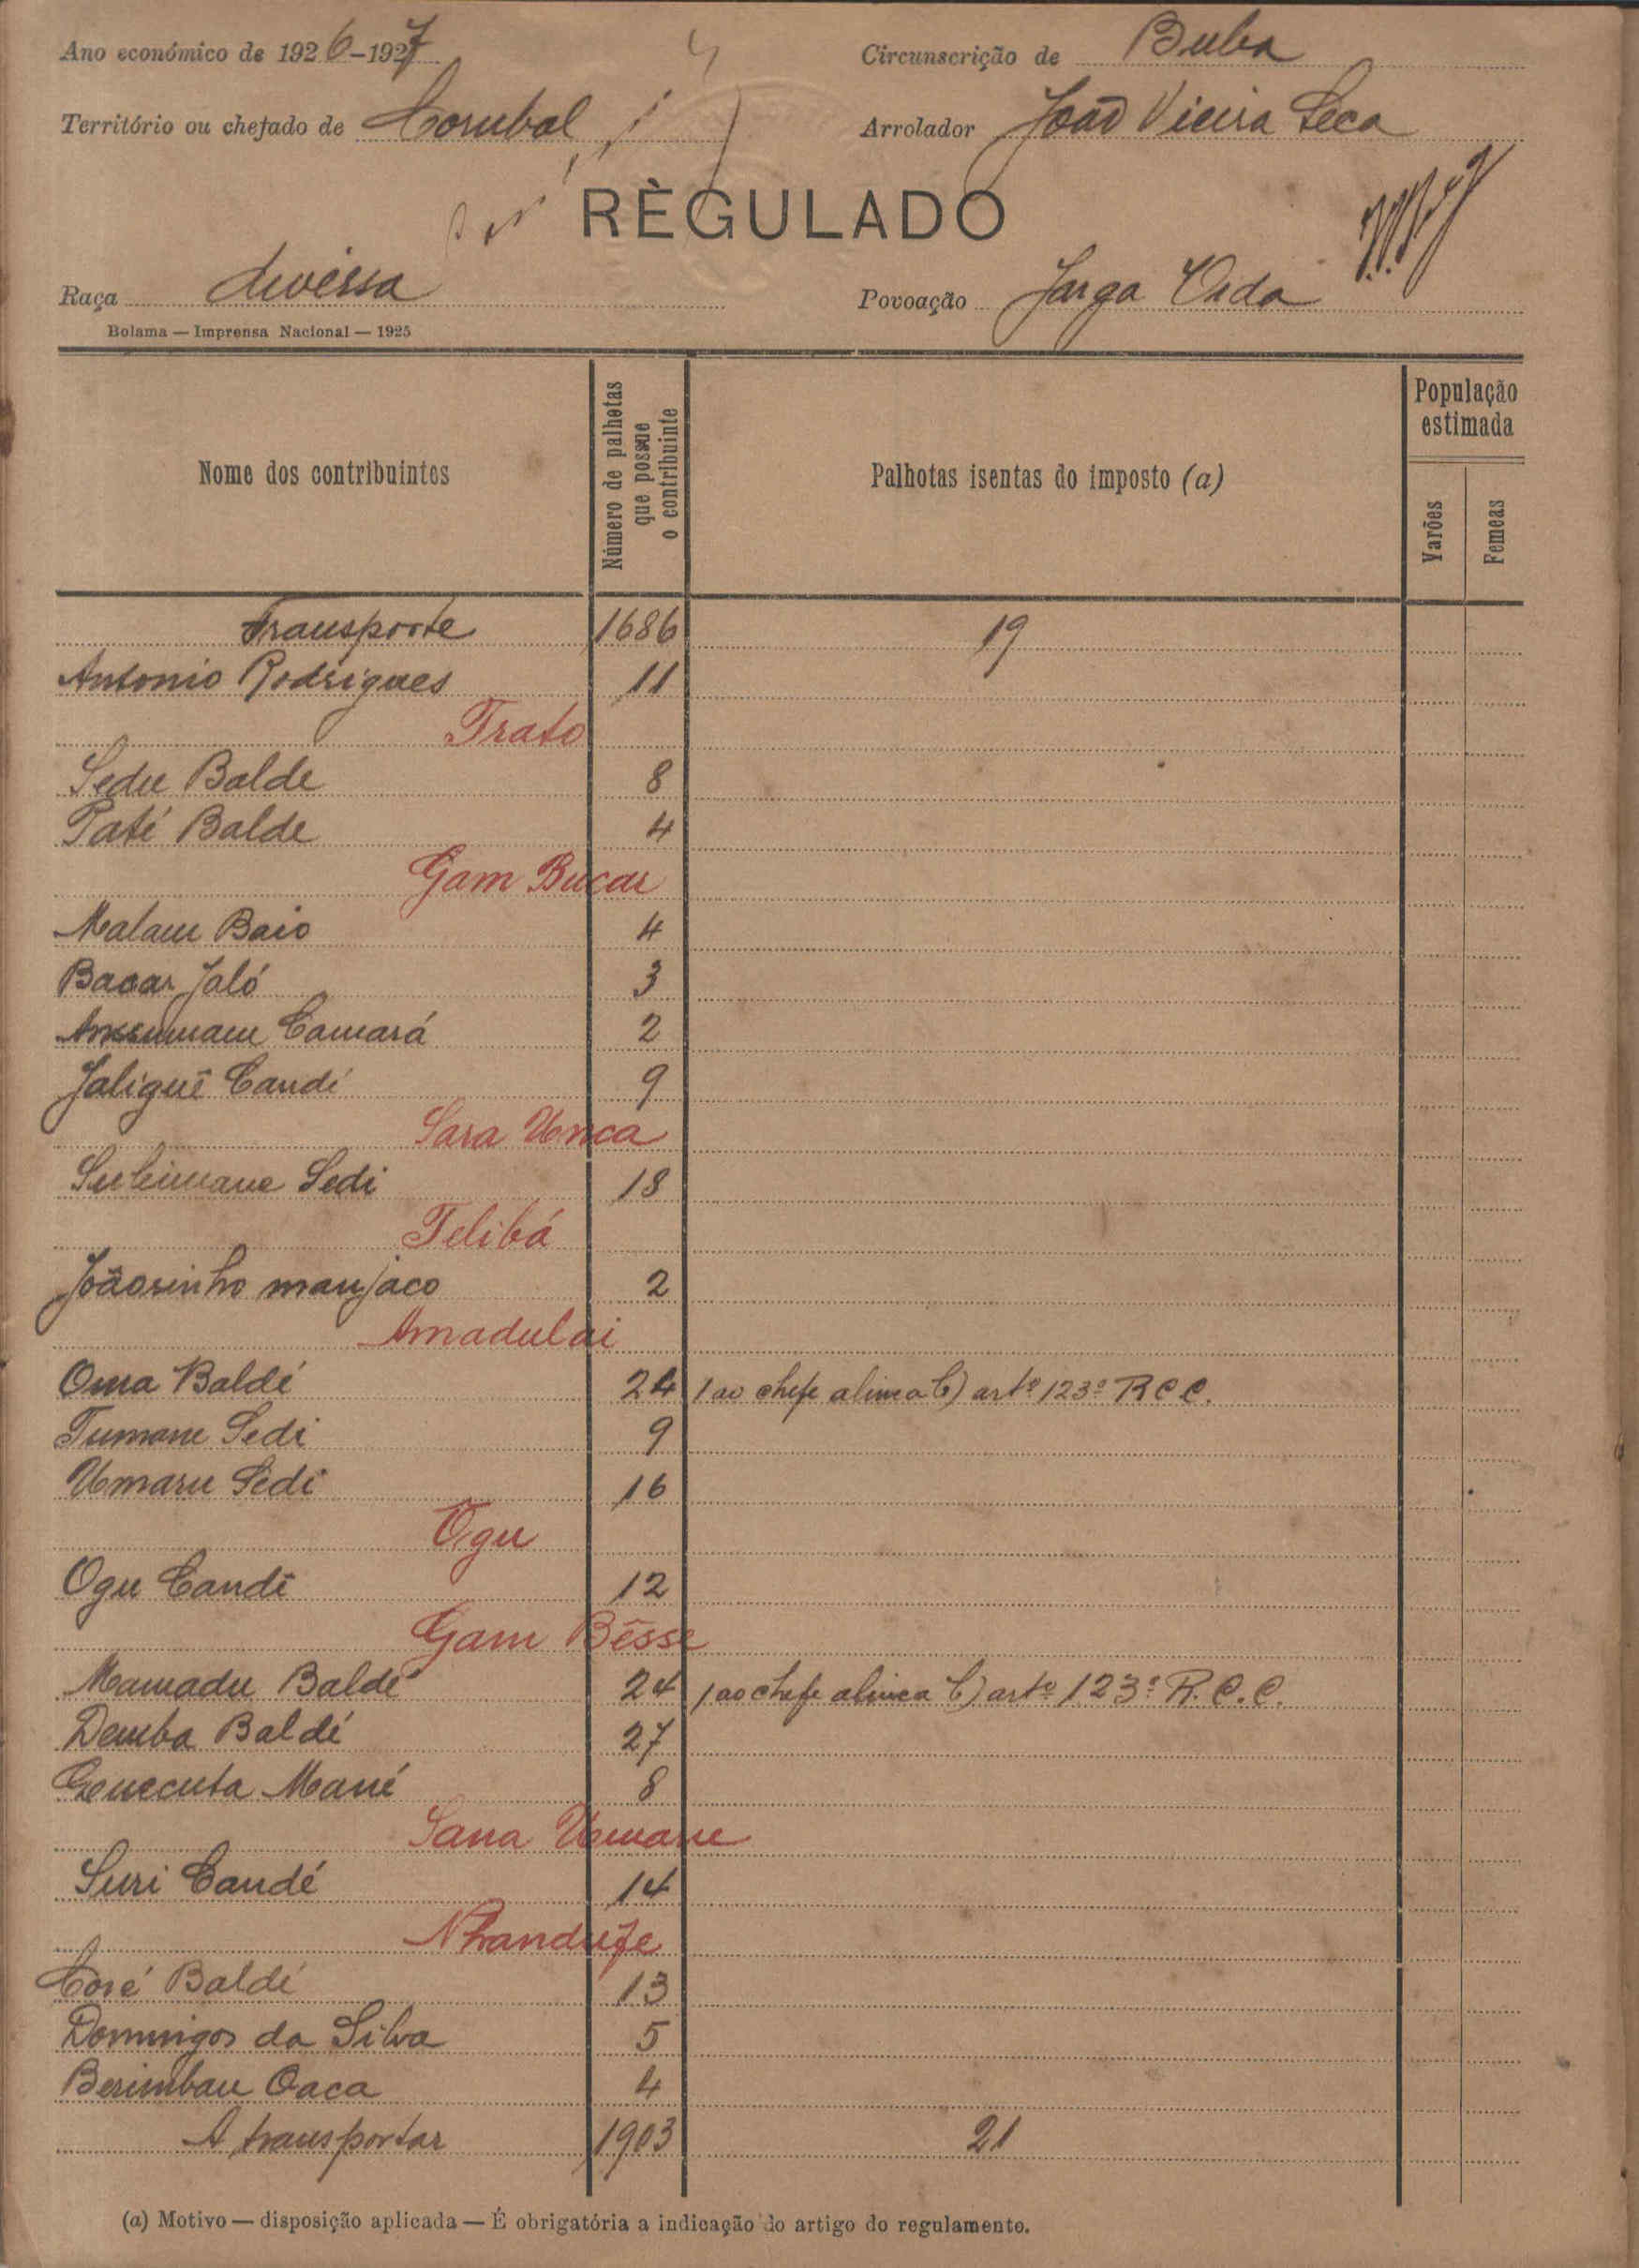 Ano económico de 1926-1927
Circunscrição de Buba
Território ou chefado de Corubal
Arrolador João Vieira Seca
RÈGULADO
Raça diversa
Povoação Jarga
Bolama — Imprensa Nacional — 1925
Nome dos contribuintes
Número de palhotas que possue o contribuinte
Palhotas isentas do imposto (a)
População estimada
Varões
Femeas
Transporte 1686 19
Antonio Rodrigues 11
Trato
Sedu Balde 8
Paté Balde 4
Gam Bucar
Malam Baio 4
Bacar Jaló 3
Camará 2
Jaliguê Candé 9
Sara Unca
Suleimane Sedi 18
Telibá
Joãosinho manjaco 2
Amadulai
Oma Baldé 24 1 ao chefe alinea b) artº 123º R C C.
Tumane Sedi 9
Umaru Sedi 16
Ogu
Ogu Candé 12
Gam Bêsse
Mamadu Baldé 24 1 ao chefe alinea b) artº 123º R. C. C.
Demba Baldé 27
Mané 8
Sana Umaru
Suri Candé 14
Nhandufe
Coré Baldé 13
Domingos da Silva 5
Berimbau Oaca 4
A transportar 1903 21
(a) Motivo — disposição aplicada — É obrigatória a indicação do artigo do regulamento.